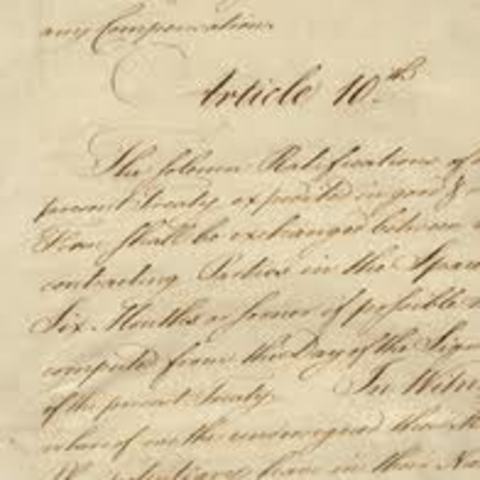 any Compensation
Article 10th
The solemn Ratifications of
present Treaty expedited in good &
Form shall be exchanged between
contracting Parties in the Space
Six Months or sooner if possible
computed from the Day of the Sign
of the present Treaty. In Witn
whereof we the undersigned their M
Plenipotentiary have in their Na